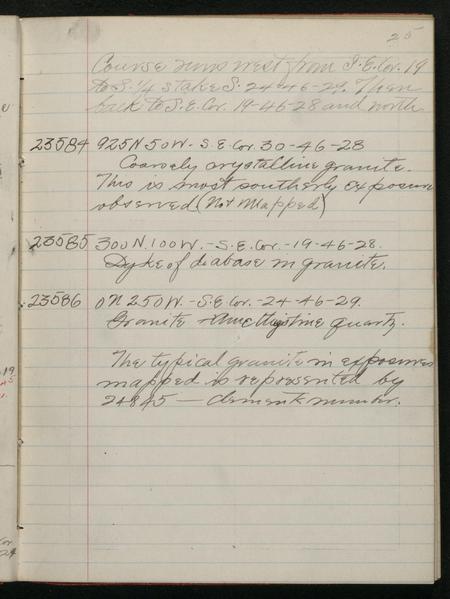 25
Course runs west from S.E. Cor. 19
to S. 1/4 stake S. 24-46-29. Then
back to S.E. Cor. 19-46-28 and north
23584 925 N. 50 W. - S.E. Cor. 30-46-28
Coarsely crystalline granite.
This is most southerly exposure
observed (Not Mapped)
23585 300 N. 100 W. - S.E. Cor. - 19-46-28.
Dyke of diabase in granite.
23586 0 N 250 W. - S.E. Cor. - 24-46-29.
Granite Amethystine quartz.
The typical granite in exposures
mapped is represented by
24845 — Clements number.
19
45
Cor
24